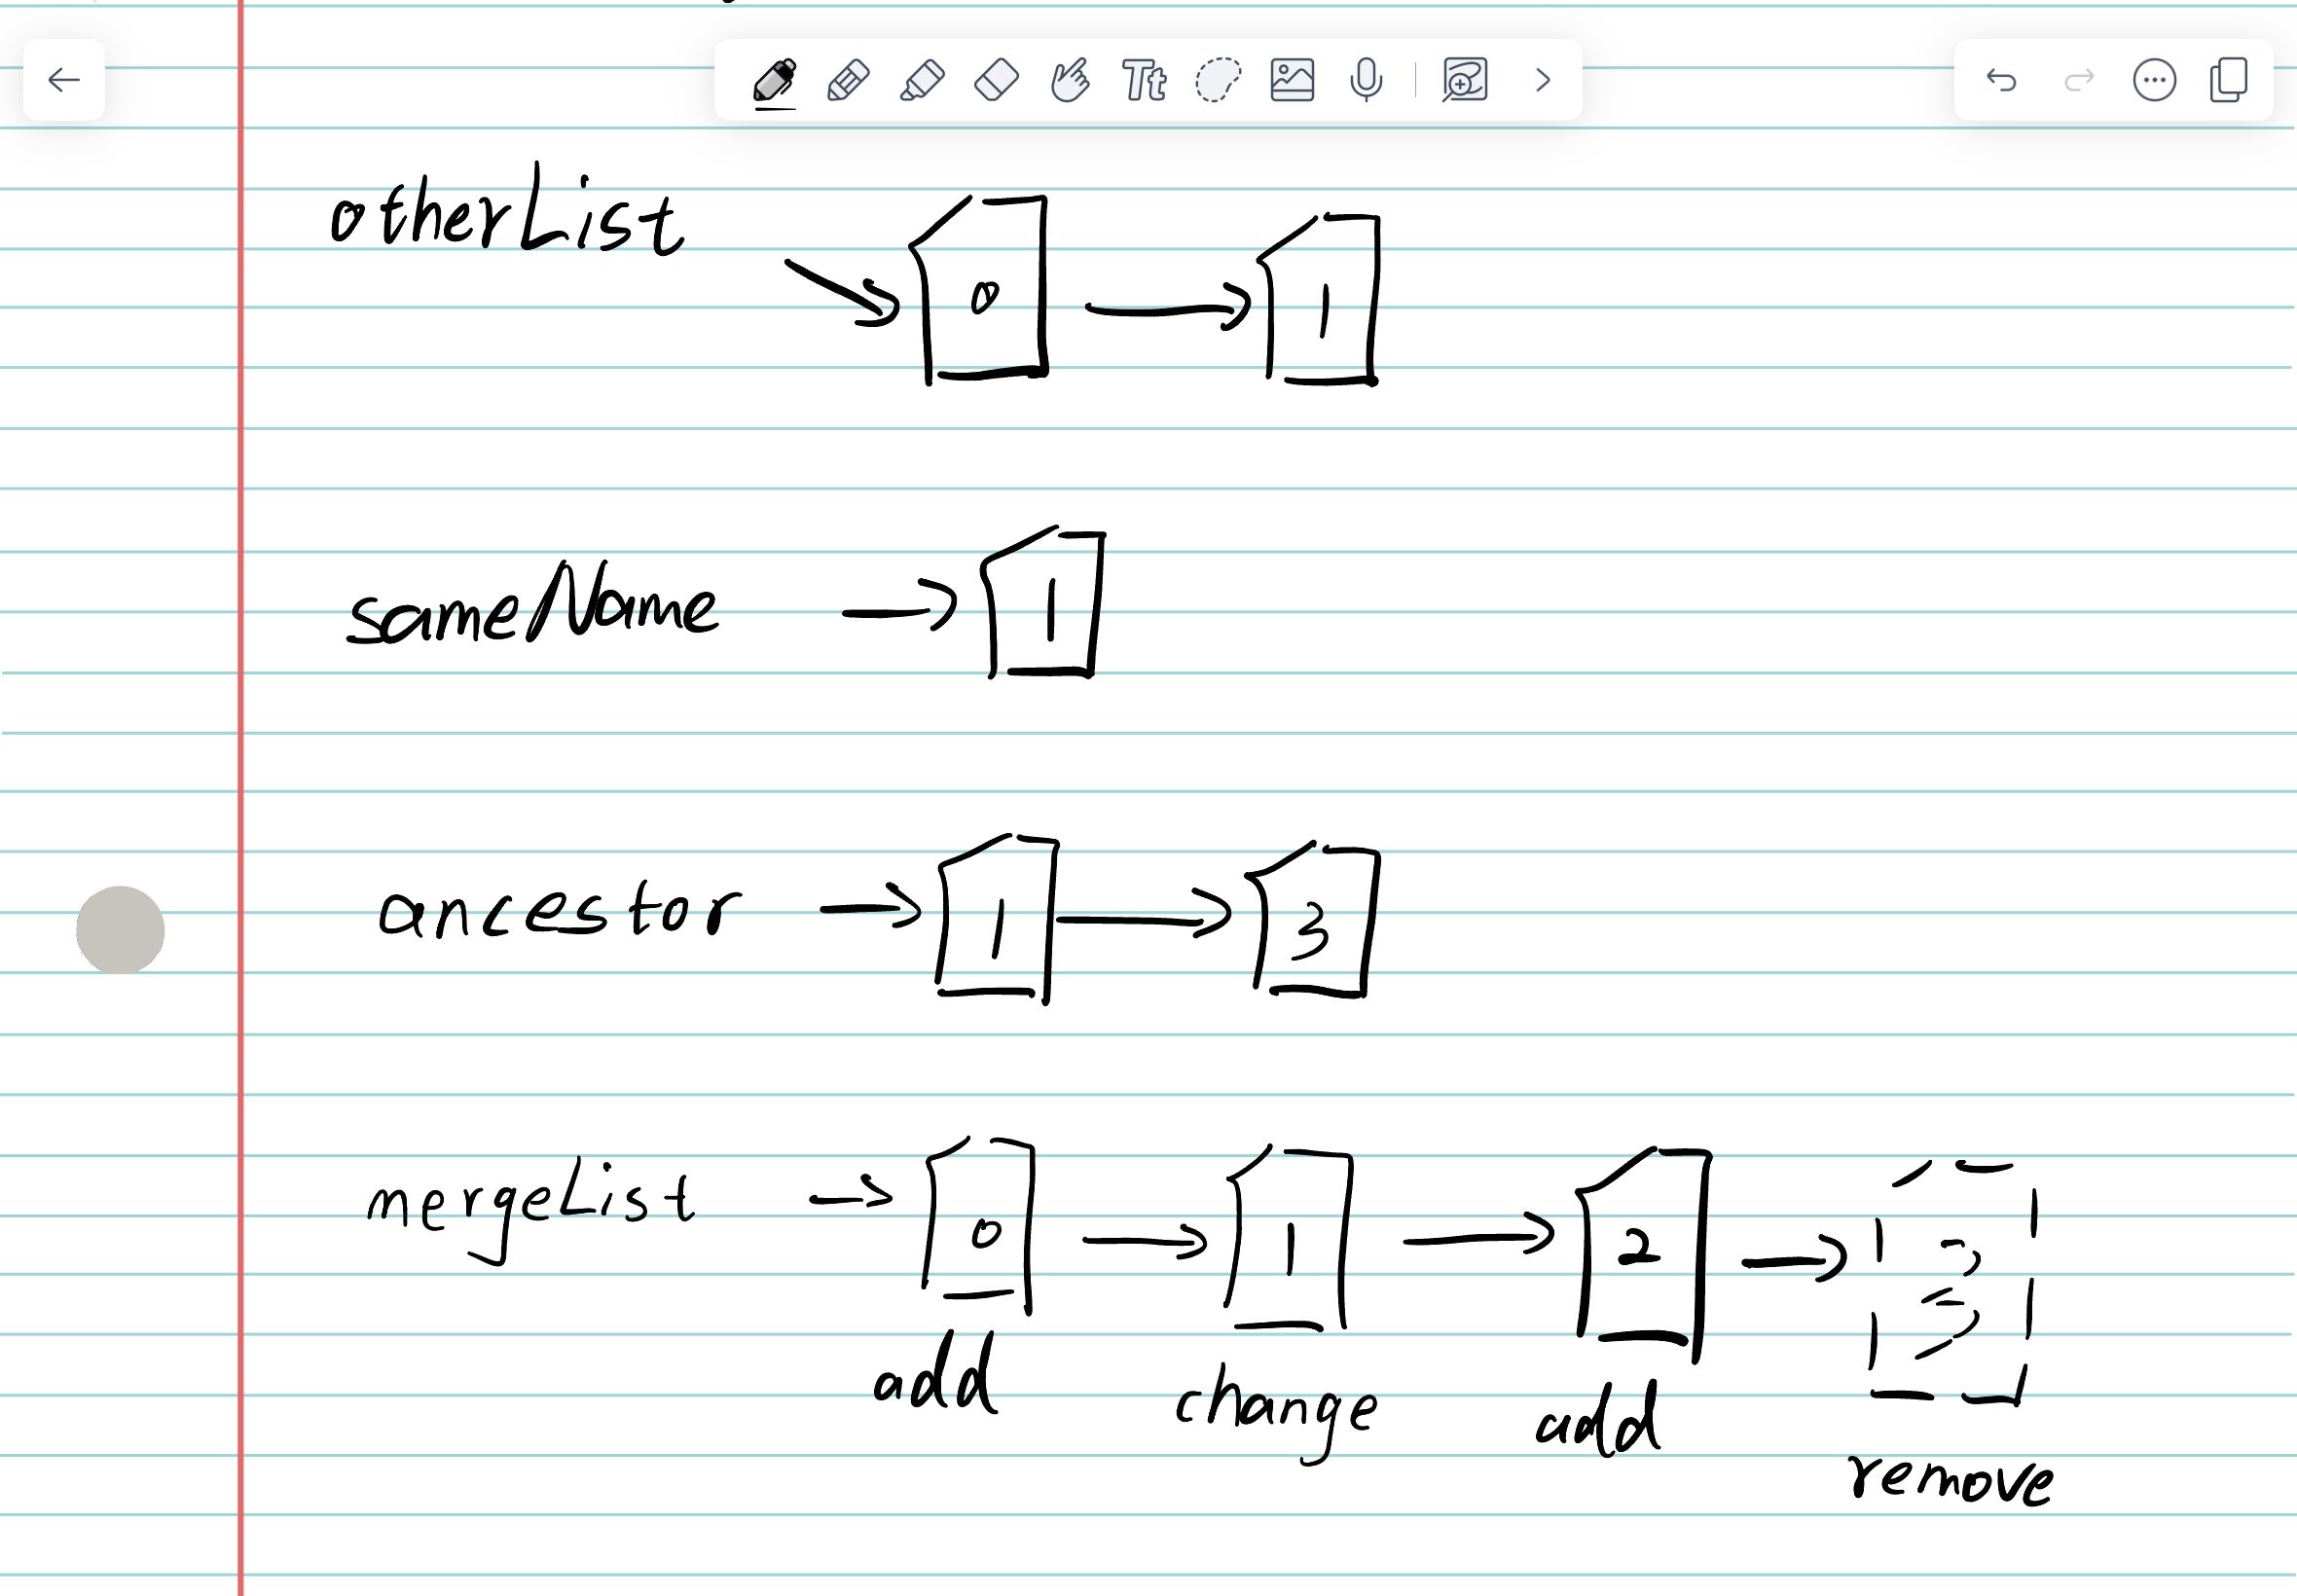 Tt
otherList
0 1
sameName 1
ancestor 1 3
mergeList 0 1 2 3
add change add remove